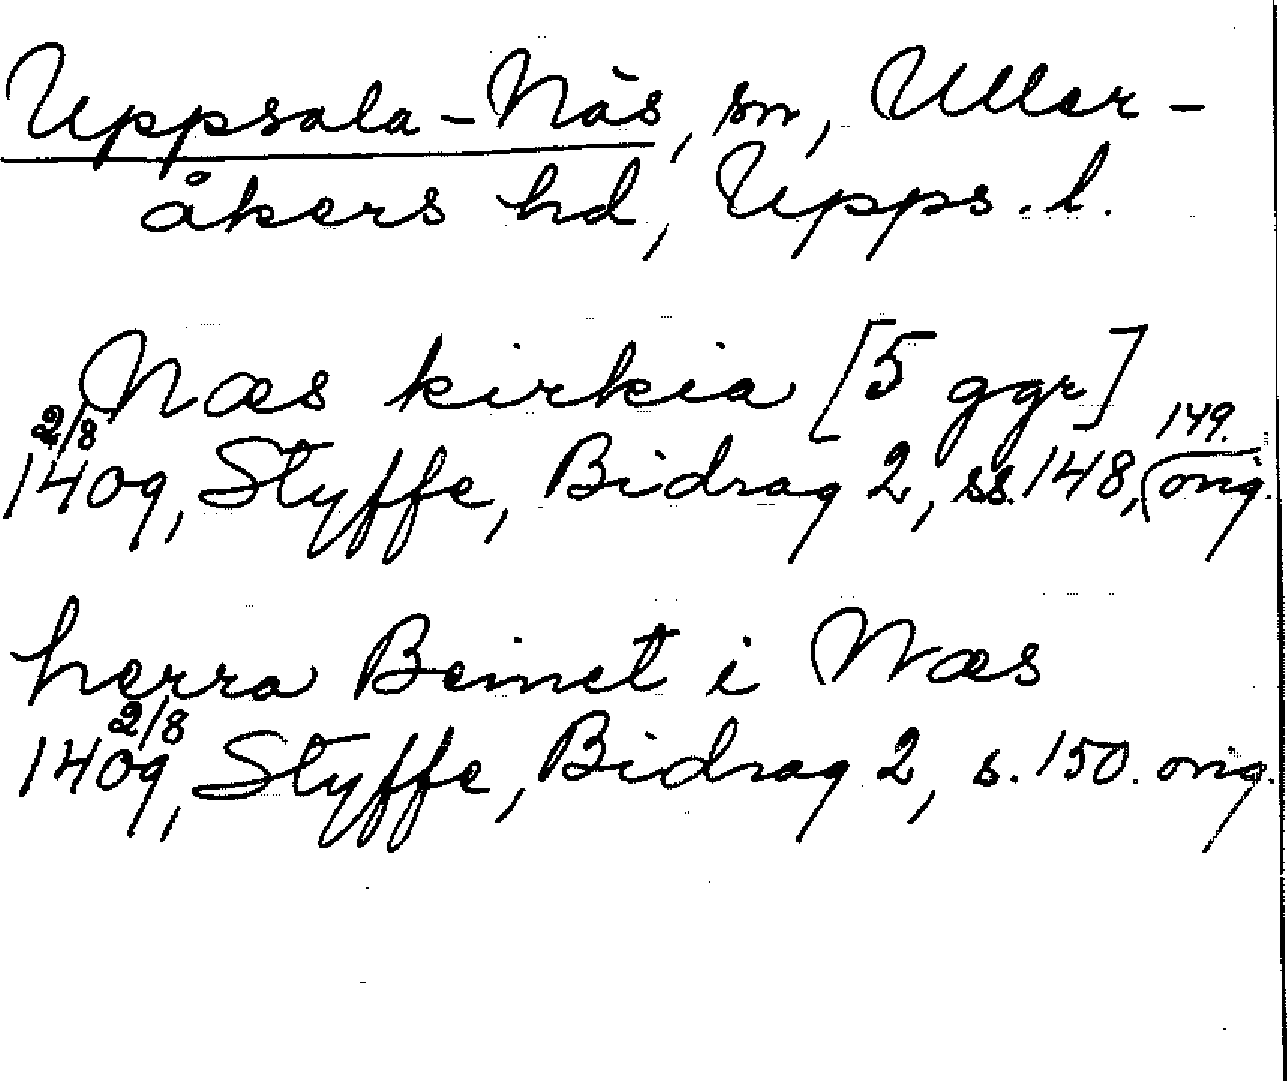 Uppsala-Näs, sn, Uller-
åkers hd, Upps. l.
Næs kirkia [5 ggr]
2/8 149.
1409, Styffe, Bidrag 2, ss. 148, orig.
herra Beinct i Næs
2/8
1409, Styffe, Bidrag 2, s. 150. orig.